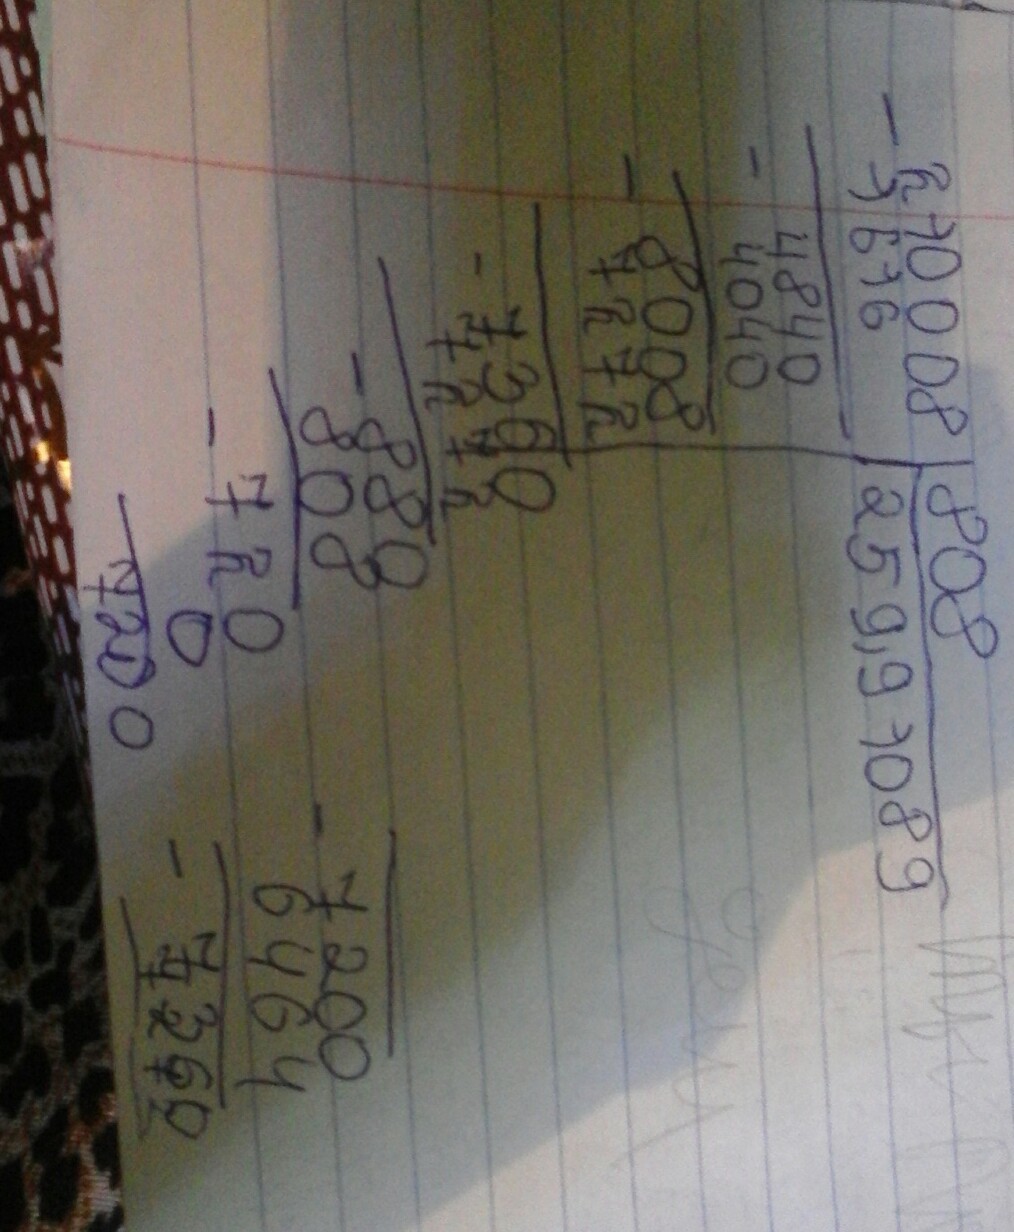 210008 808
- 1616 259,91089
4840
- 4040
8008
- 7272
7360
- 7272
880
- 808
720
- 0
7200
- 7200
6464
- 7360
7272